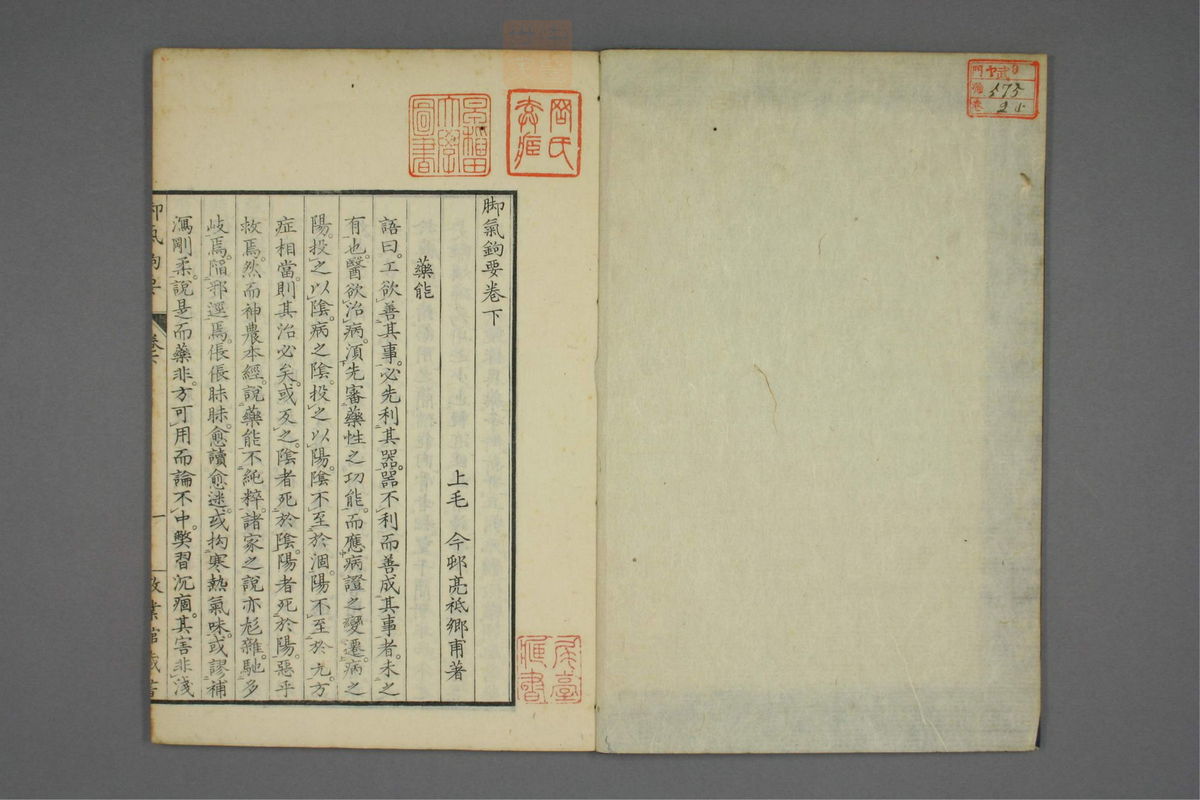 脚氣鉤要卷下
上毛 今邨亮祗卿甫著
藥能
語曰。工欲善其事。必先利其器。器不利而善成其事者。未之
有也。醫欲治病。須先審藥性之功能。而應病證之變遷。病之
陽投之以陰。病之陰。投之以陽。陰不至於涸。陽不至於亢。方
症相當。則其治必矣。或反之。陰者死於陰。陽者死於陽。惡乎
救焉。然而神農本經。說藥能不純粹。諸家之說亦尨雜。馳多
岐焉。陷邪逕焉。倀倀眛眛。愈讀愈迷。或拘寒熱氣味。或謬補
瀉剛柔。說是而藥非。方可用而論不中。弊習沉痼。其害非淺
一
早稲田大學圖書
門 ヤ
575